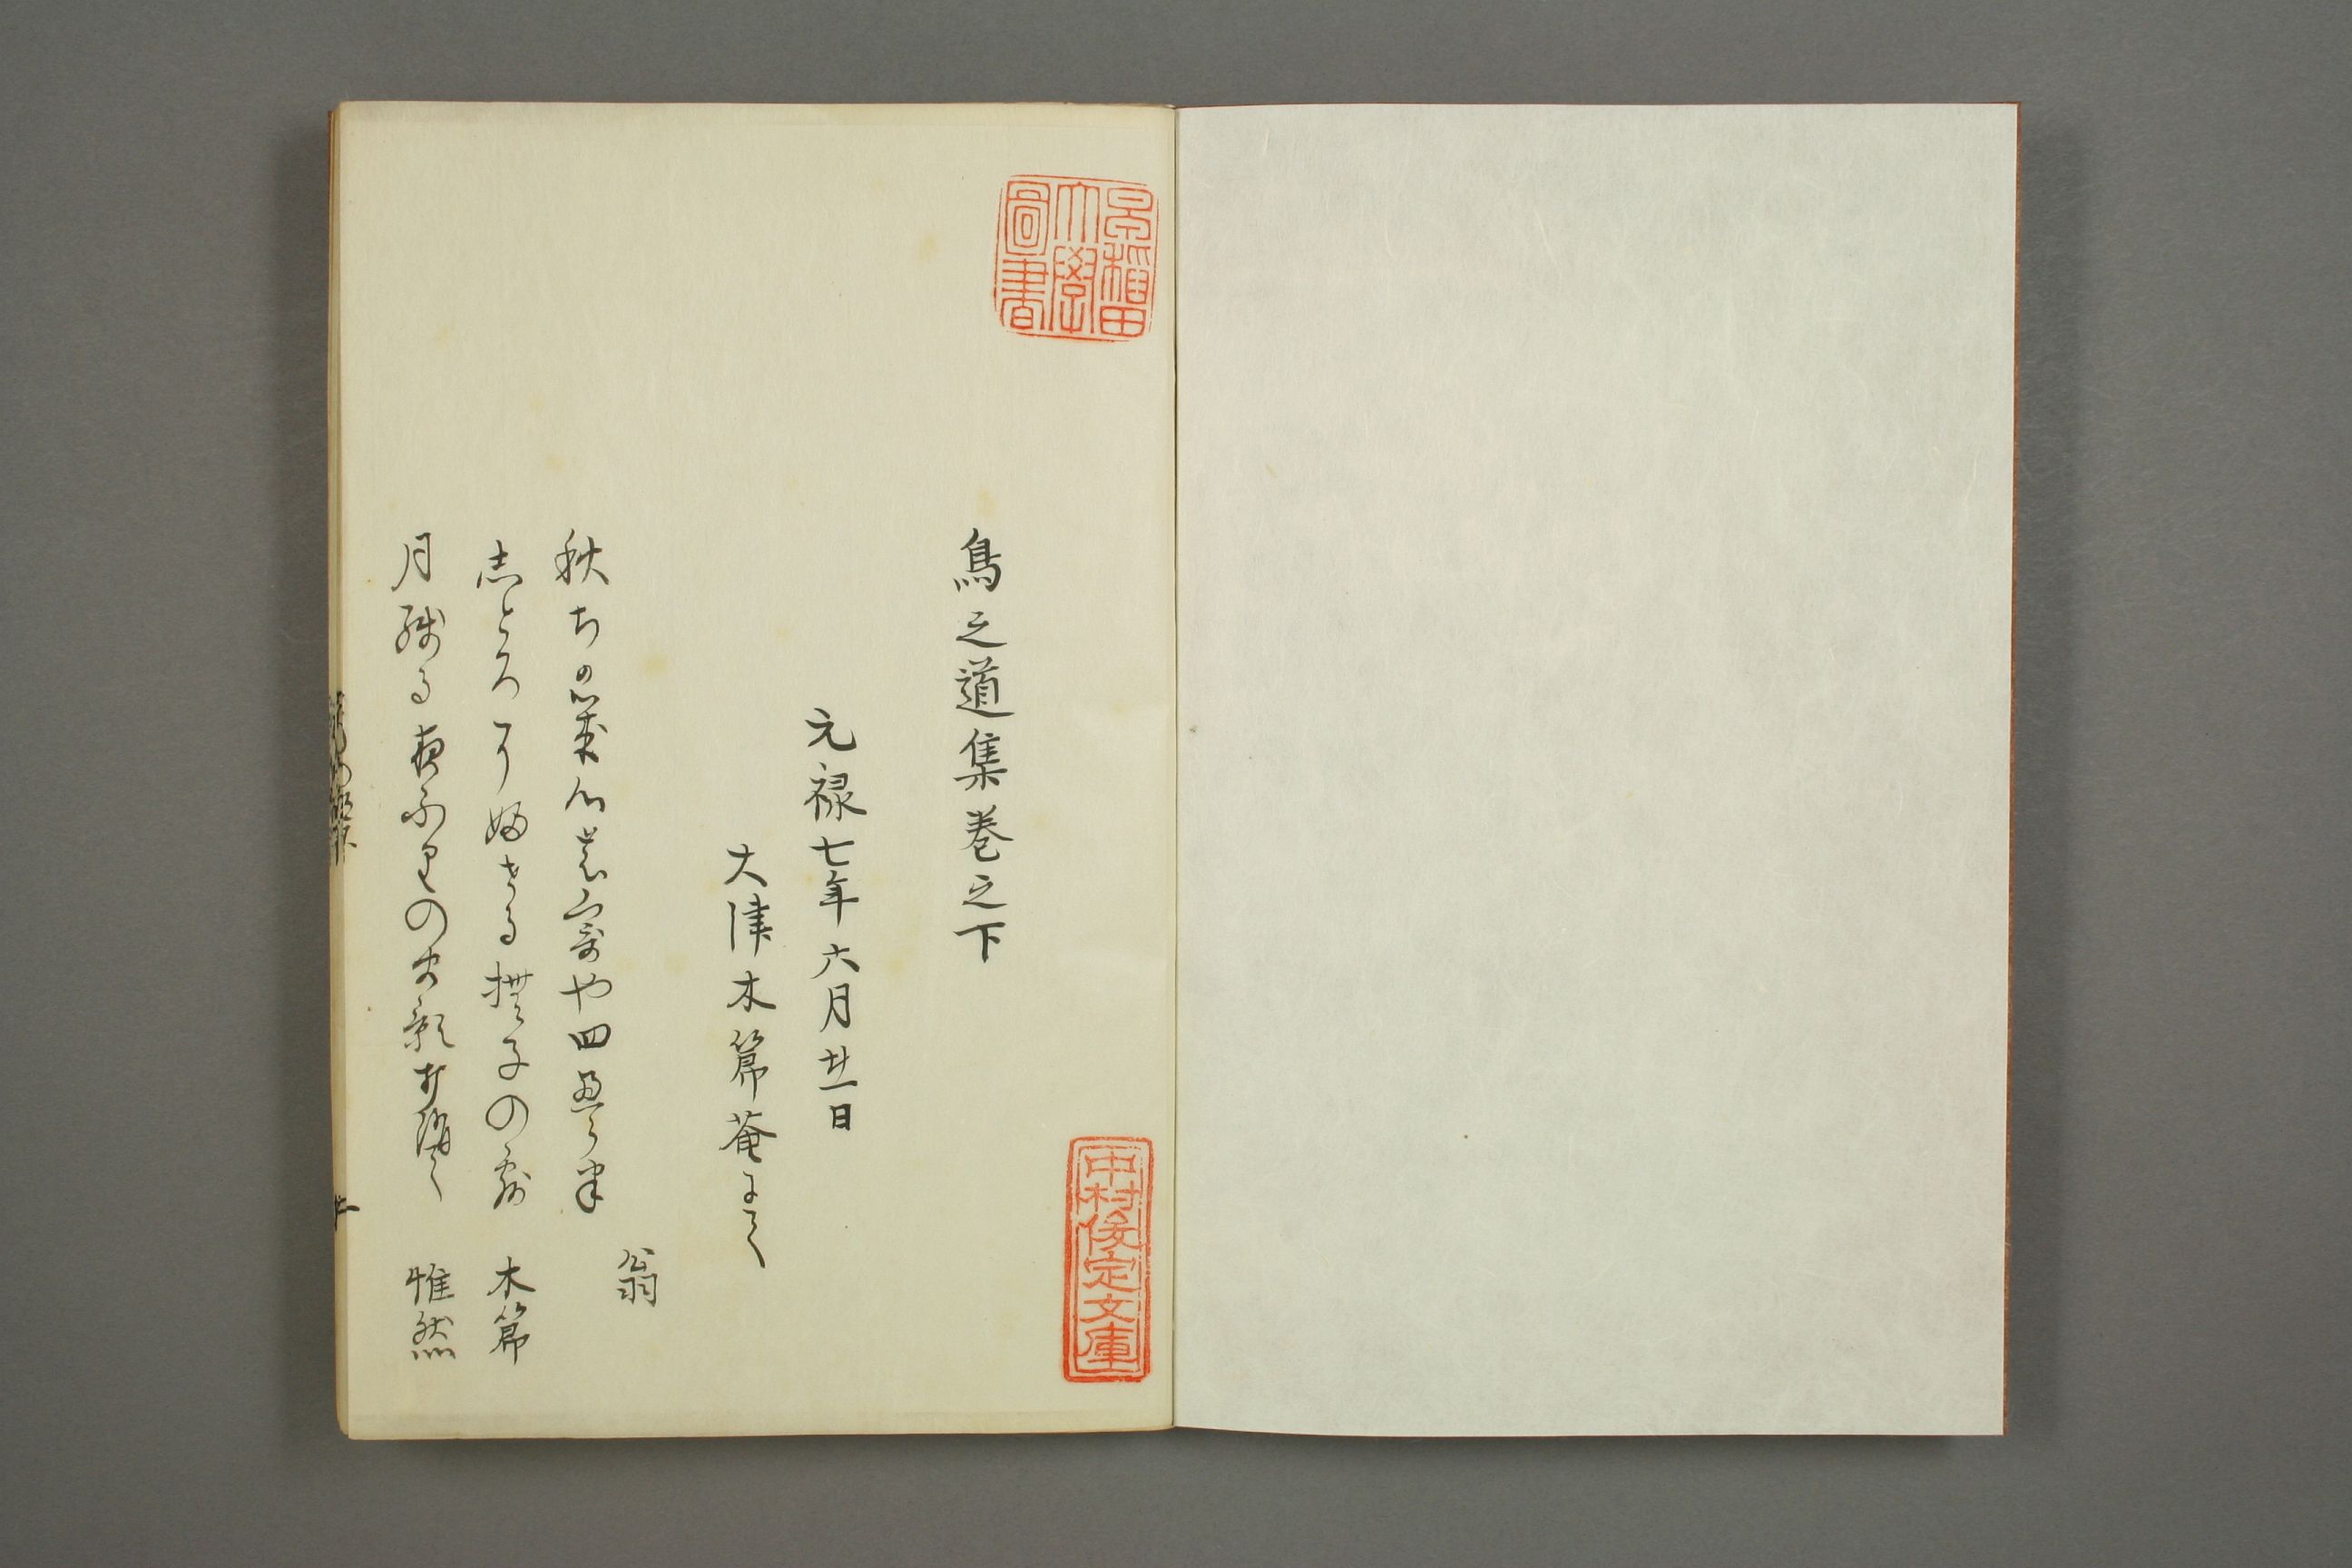 早稲田
大學
圖書
鳥之道集巻之下
元禄七年六月廿一日
大津木節菴にて
翁
秋ちかき心の寄や四畳半
志とろにふせる撫子の露 木節
月残る夜ふりの火影打消て 惟然
中村俊定文庫